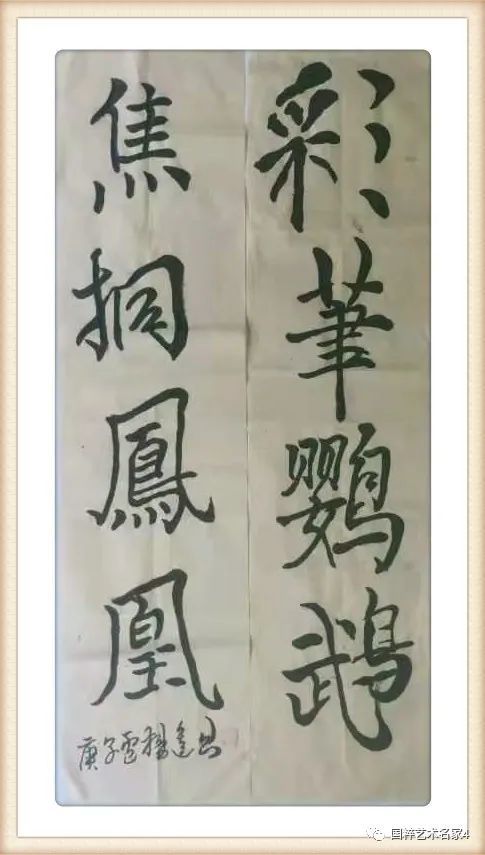 彩筆鸚鵡
焦桐鳳凰
庚子
国粹艺术名家4